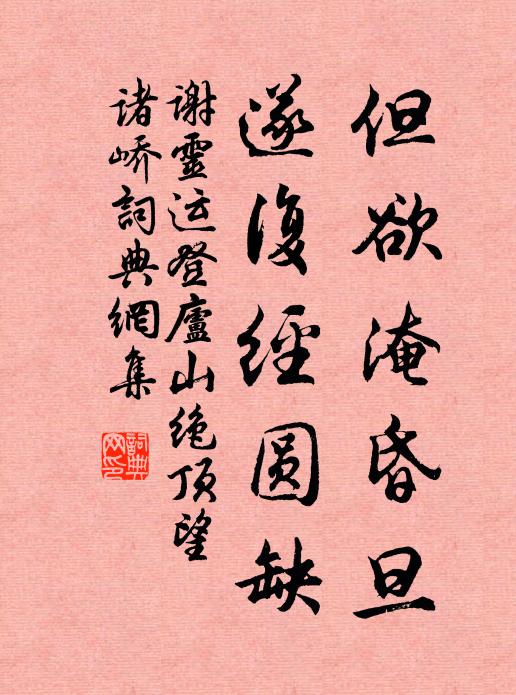 但欲淹昏旦
遂復經圆缺
谢靈运登廬山绝顶望
诸峤詞典網集
詞典
网印